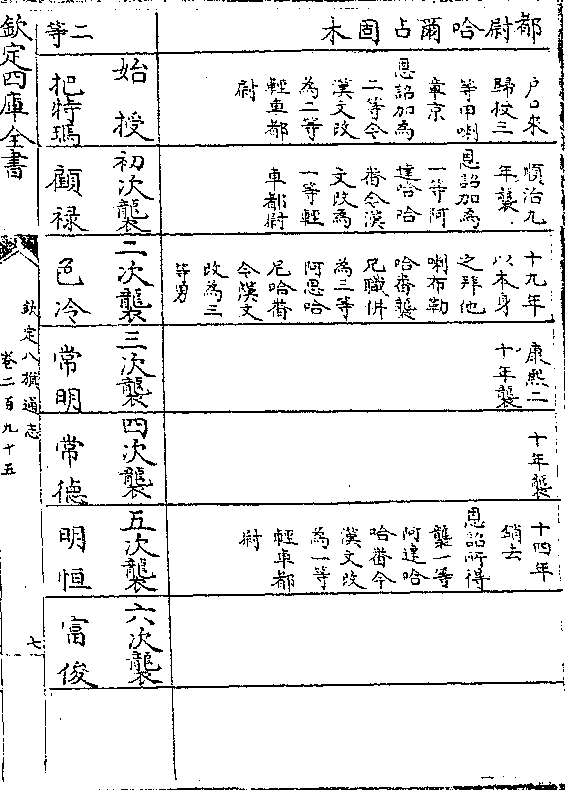 都尉哈爾占固木
戶口來
歸授三
等甲喇
章京
恩詔加為
二等今
漢文改
為二等
輕車都
尉
順治九
年襲
恩詔加為
一等阿
達哈哈
番今漢
文改為
一等輕
車都尉
十九年
以本身
之拜他
喇布勒
哈番襲
兄職併
為三等
阿思哈
尼哈番
今漢文
改為三
等男
康熙二
十年襲
十年襲
十四年
銷去
恩詔所得
襲一等
阿達哈
哈番今
漢文改
為一等
輕車都
尉
始授
初次襲
二次襲
三次襲
四次襲
五次襲
六次襲
二等
把特瑪
顧祿
色冷
常明
常德
明恒
富俊
欽定四庫全書
欽定八旗通志
卷二百九十五
七